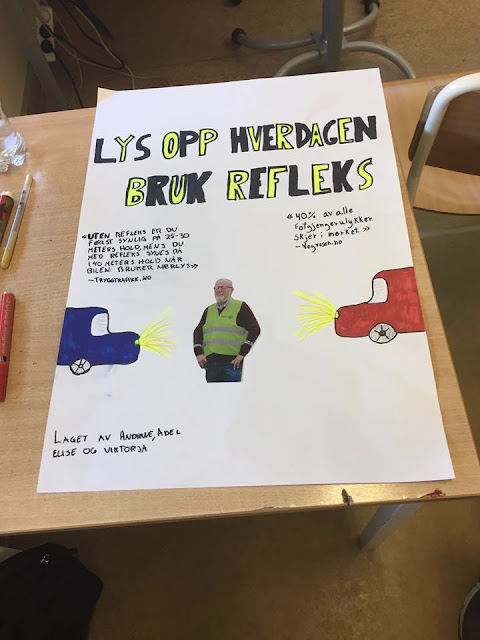 LYS OPP HVERDAGEN
BRUK REFLEKS
«UTEN REFLEKS ER DU
FØRST SYNLIG PÅ 25-30
METERS HOLD, MENS DU
MED REFLEKS SYNES PÅ
140 METERS HOLD NÅR
BILEN BRUKER NÆRLYS»
-TRYGGTRAFIKK.NO
«40% av alle
Fotgjengerulykker
skjer i mørket.»
-Vegvesen.no
LAGET AV ANDRINE, ADEL
ELISE OG VIKTORJA